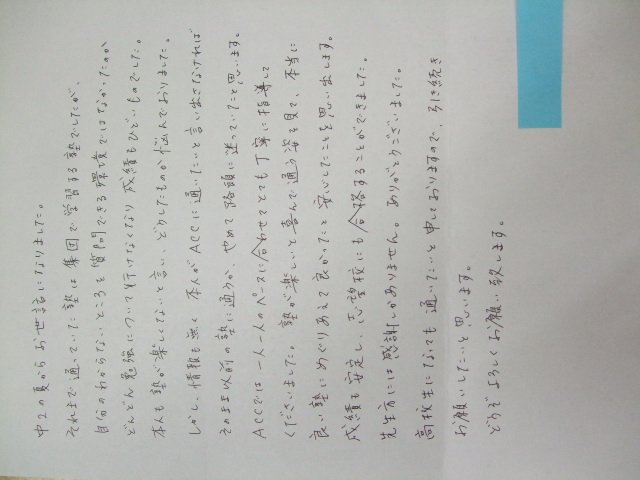 中2の夏からお世話になりました。
それまで通っていた塾は集団で学習する塾でしたが、
自分のわからないところを質問できる環境ではなかったのか
どんどん勉強について行けなくなり成績もひどいものでした。
本人も塾が楽しくないと言い、どうしたものか悩んでおりました。
しかし、情報も無く本人がACCに通いたいと言い出さなければ
そのまま以前の塾に通うか、やめて路頭に迷っていたと思います。
ACCでは一人一人のペースに合わせてとても丁寧に指導して
くださいました。塾が楽しいと喜んで通う姿を見て、本当に
良い塾にめぐりあえて良かったと安心したことを思い出します。
成績も安定し、志望校にも合格することができました。
先生方には感謝しかありません。ありがとうございました。
高校生になっても通いたいと申しておりますので、引き続き
お願いしたいと思います。
どうぞよろしくお願い致します。